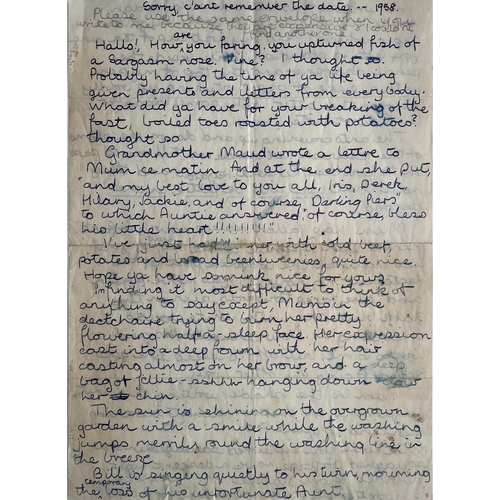 Sorry, c'ant remember the date -- 1958.
Please use the same envelope when you
write to me because I couldn't
find another one
are
Hallo!, How, you faring, you upturned fish of
a Sargasm nose. Fine? I thought so.
Probably having the time of ya life being
given presents and letters from everybody.
What did ya have for your breaking of the
fast, boiled toes roasted with potatoes?
thought so
Grandmother Maud wrote a lettre to
Mum ce matin. And at the end she put,
"and my best love to you all, Iris, Derek,
Hilary, Jackie, and of course, Darling Piers"
to which Auntie answered "of course, bless
his little heart!!!!!!!!!"
I've just had dinner, with cold beef,
potatoes and beeniweenies, quite nice.
Hope ya have somink nice for yours
I'm finding it most difficult to think of
anything to say except, Mums in the
dectchaire trying to burn her pretty
flowering half a sleep face. Her expression
cast into a deep frown with her hair
casting almost on her brow, and a deep
bag of jellie-sshhh hanging down
her chin.
The sun is shining on the overgrown
garden with a smile while the washing
jumps merrily round the washing line in
the breeze
Bill is singing quietly to his turn, mourning
temporary
the loss of his unfortunate Aunt.